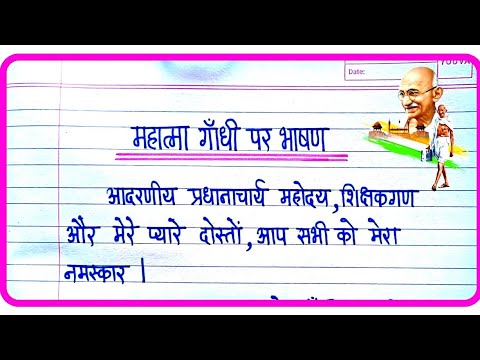 Date:
महात्मा गाँधी पर भाषण
आदरणीय प्रधानाचार्य महोदय, शिक्षकगण
और मेरे प्यारे दोस्तों, आप सभी को मेरा
नमस्कार।